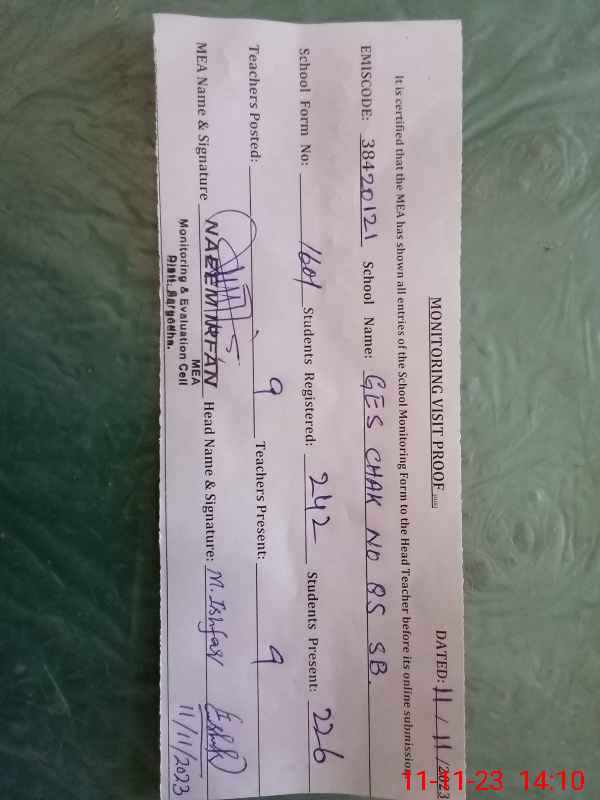 MONITORING VISIT PROOF
DATED: 11/11/2023
It is certified that the MEA has shown all entries of the School Monitoring Form to the Head Teacher before its online submission
EMISCODE: 38420121 School Name: GES CHAK NO 85 SB.
School Form No: 1601 Students Registered: 242 Students Present: 226
Teachers Posted: 9 Teachers Present: 9
MEA Name & Signature NAEEM IRFAN Head Name & Signature: M. Ishfaq
MEA
Monitoring & Evaluation Cell
Distt. Sargodha.
11/11/2023
11-11-23 14:10